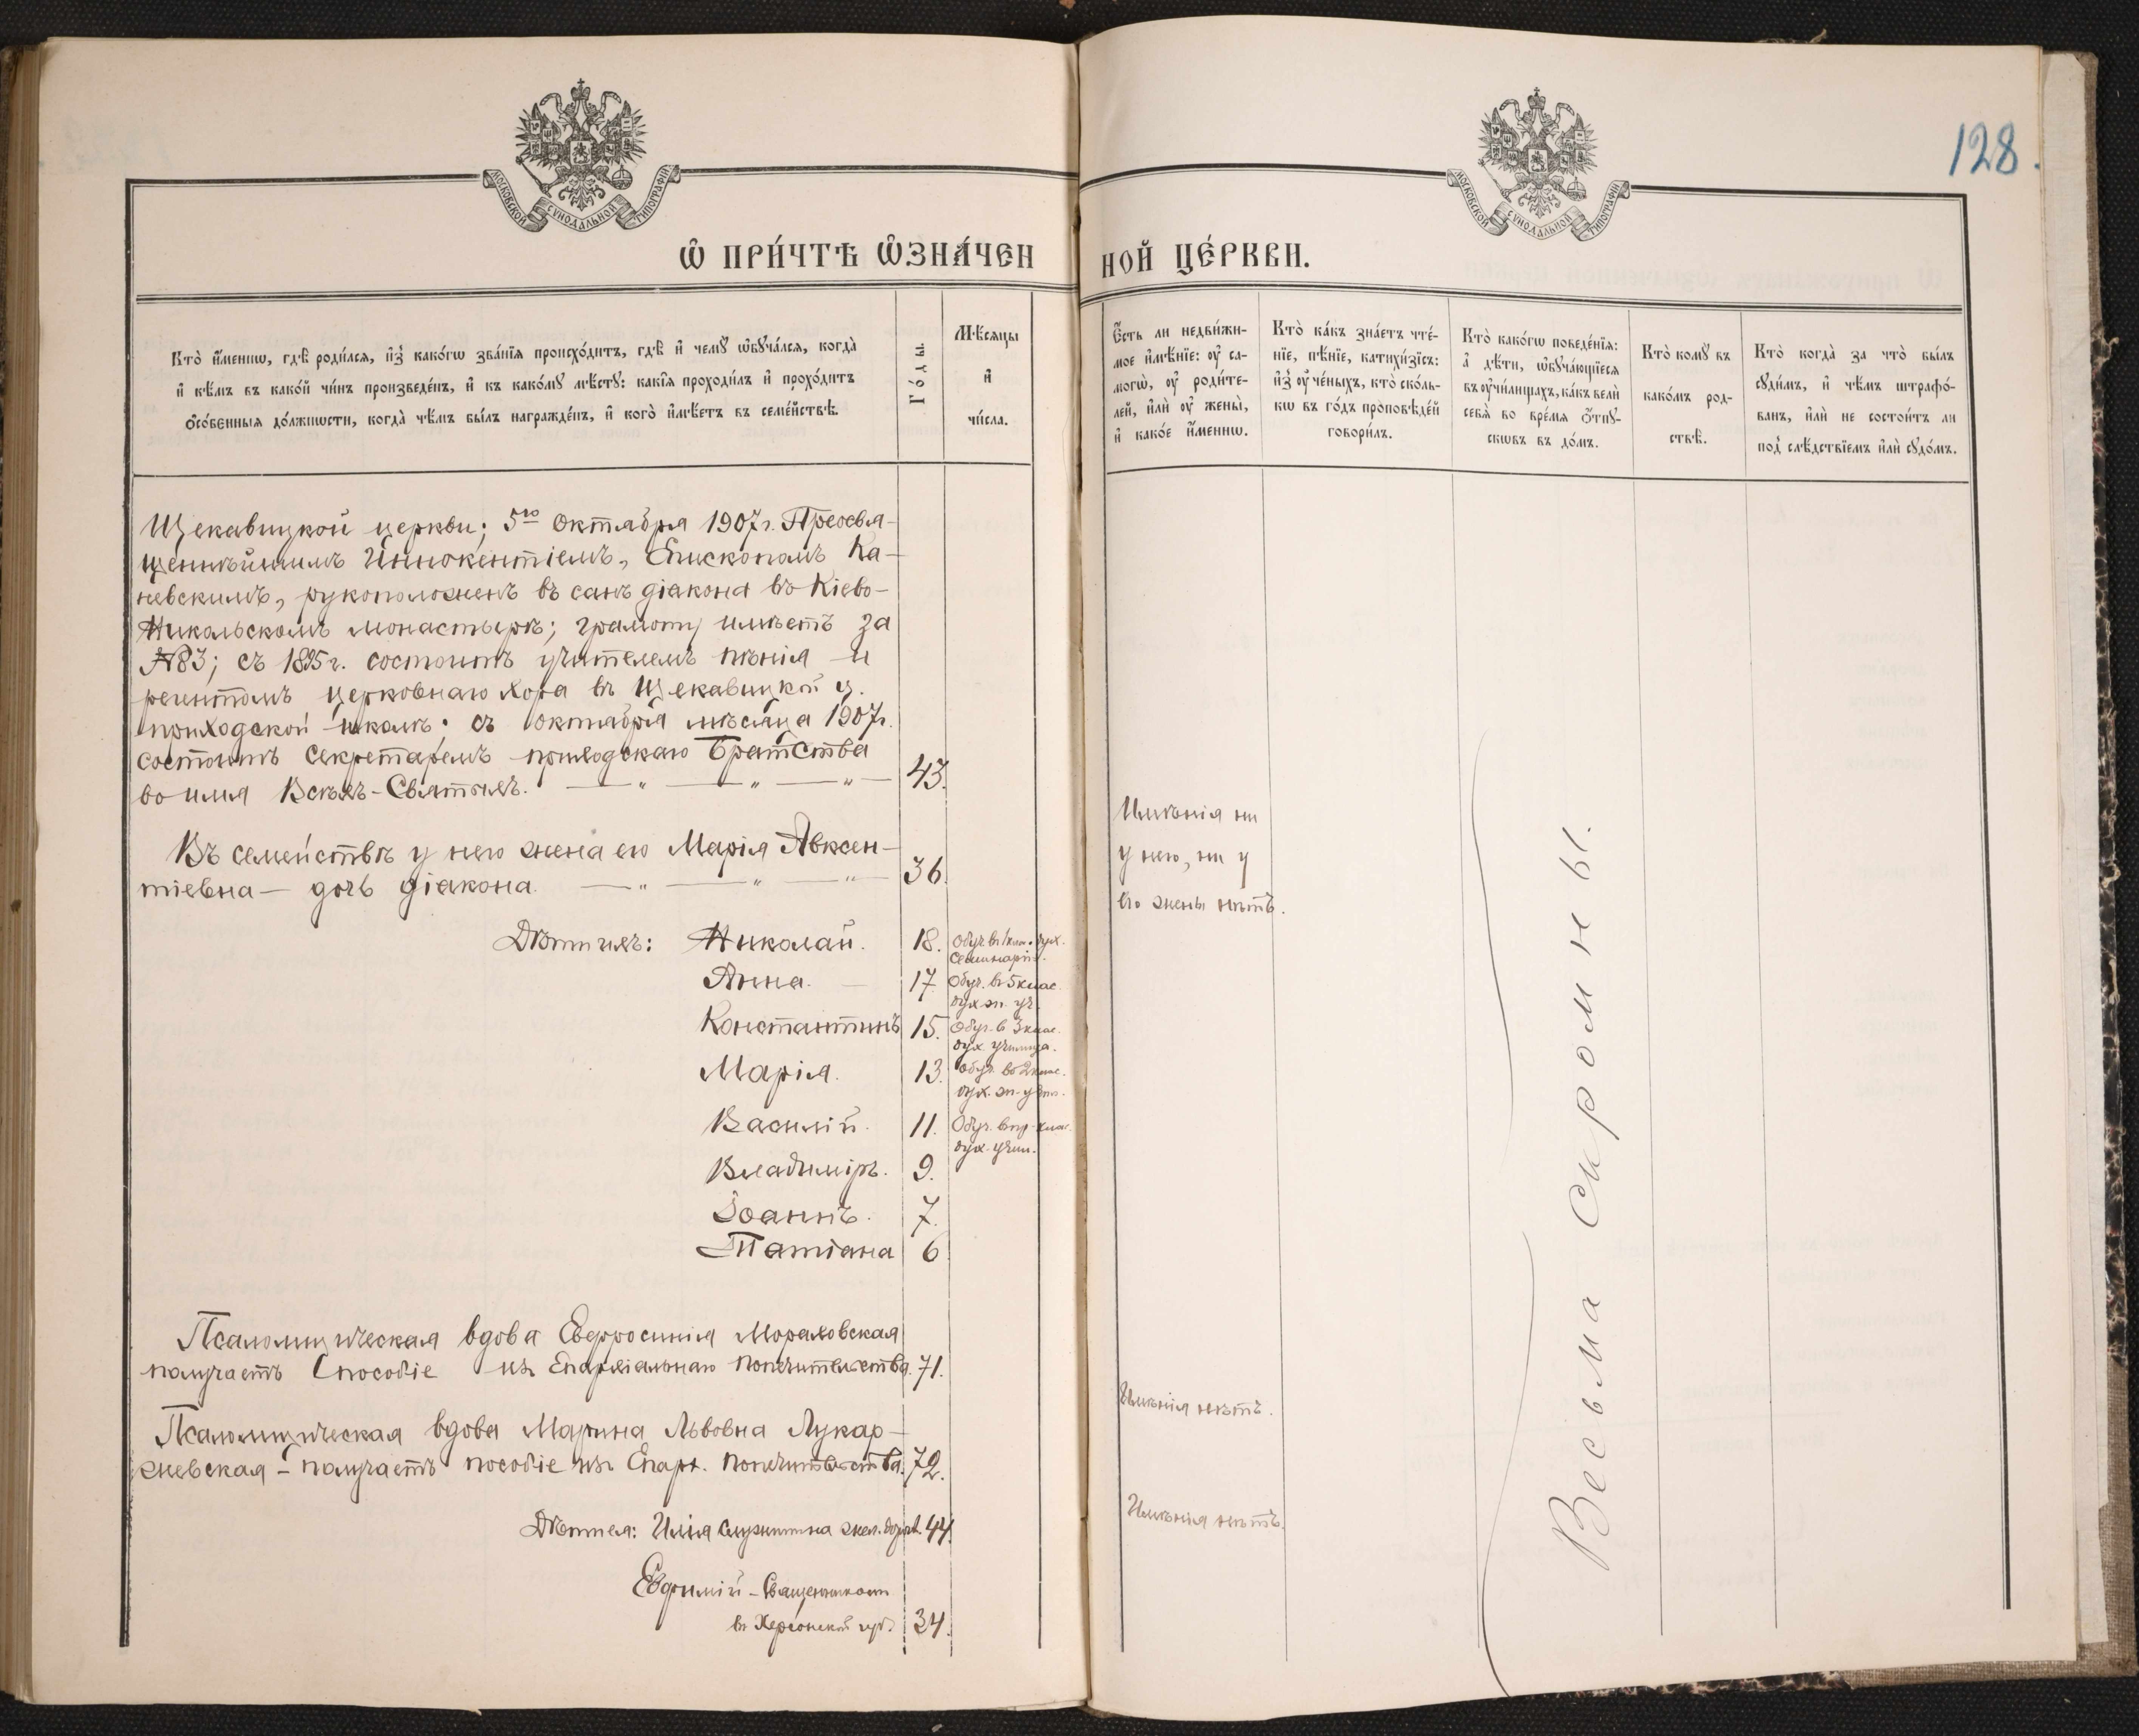 МОСКОВСКОЙ СѴНОДАЛЬНОЙ ТИПОГРАФІИ
МОСКОВСКОЙ СѴНОДАЛЬНОЙ ТИПОГРАФІИ
128.
Ѡ ПРИ́ЧТѢ Ѡ҆ЗНА́ЧЕН
НОЙ ЦЕ́РКВИ.
Кто̀ и҆́менѡ, гдѣ̀ роди́лсѧ, и҆з̾ како́гѡ зва́нїѧ происхо́дитъ, гдѣ̀ и҆ чемꙋ̀ ѡ҆бꙋча́лсѧ, когда̀
и҆ кѣ́мъ въ како́й чи́нъ произведе́нъ, и҆ къ како́мꙋ мѣ́стꙋ: какі̑ѧ проходи́лъ и҆ прохо́дитъ
ѻ҆со́бенныѧ до́лжности, когда̀ чѣ́мъ бы́лъ награжде́нъ, и҆ кого̀ и҆мѣ́етъ въ семе́йствѣ.
Го́ды
Мѣ́сѧцы
и҆
чи́сла.
Є҆́сть ли недви́жи-
мое и҆мѣ́нїе: ᲂу҆ са-
могѡ̀, ᲂу҆ роди́те-
лей, и҆лѝ ᲂу҆ жены̀,
и҆ како́е и҆́меннѡ.
Кто̀ ка́къ зна́етъ чте́-
нїе, пѣ́нїе, катихи́зїсъ:
и҆з̾ ᲂу҆че́ныхъ, кто̀ ско́ль-
кѡ въ го́дъ проповѣ́дей
говори́лъ.
Кто̀ како́гѡ поведе́нїѧ:
а҆ дѣ́ти, ѡ҆бꙋча́ющїесѧ
въ ᲂу҆чи́лищахъ, ка́къ велѝ
себѧ̀ во вре́мѧ ѿпꙋ-
скѡвъ въ до́мъ.
Кто̀ комꙋ̀ въ
како́мъ род-
ствѣ̀.
Кто̀ когда̀ за что̀ бы́лъ
сꙋди́мъ, и҆ чѣ́мъ штрафо́-
ванъ, и҆лѝ не состои́тъ ли
под̾ слѣ́дствїемъ и҆лѝ сꙋдо́мъ.
Щекавицкой церкви; 5го Октября 1907 г. Преосвя-
щеннѣйшимъ Иннокентіемъ, Епископомъ Ка-
невскимъ, рукоположенъ въ санъ діакона въ Кіево-
Никольскомъ монастырѣ; грамоту имѣетъ за
№ 83; съ 1895 г. состоитъ учителемъ пѣнія и
регентомъ церковнаго хора въ Щекавицкой ц.
приходской школѣ; съ октября мѣсяца 1907 г.
состоитъ секретаремъ приходскаго Братства
во имя Всѣхъ-Святыхъ. — „ — „ — „ — 43.
Въ семействѣ у него жена его Марія Авксен-
тіевна — дочь діакона. — „ — „ — „ — 36.
Имѣнія ни
у него, ни у
его жены нѣтъ.
Дѣти ихъ: Николай. 18. Обуч. въ 1 клас. дух.
семинаріи.
Анна. — 17. Обуч. въ 5 клас.
дух. ж. уч.
Константинъ 15. Обуч. в 3 клас.
дух. училища.
Марія. 13. Обуч. во 2 клас.
дух. ж. учил.
Василій. 11. Обуч. в пр. клас.
дух. учил.
Владиміръ. 9.
Іоаннъ. 7.
Татіана 6
Псаломщическая вдова Евфросинія Мораховская
получаетъ пособіе изъ Епархіальнаго Попечительства. 71.
Имѣнія нѣтъ.
Псаломщическая вдова Марина Львовна Лукар-
жевская - получаетъ пособіе изъ Епарх. Попечительства. 72.
Имѣнія нѣтъ.
Дѣти ея: Илія служитъ на жел. дорогѣ 44.
Евфимій - Священникомъ
въ Херсонской губ. 34.
Весьма скромны.